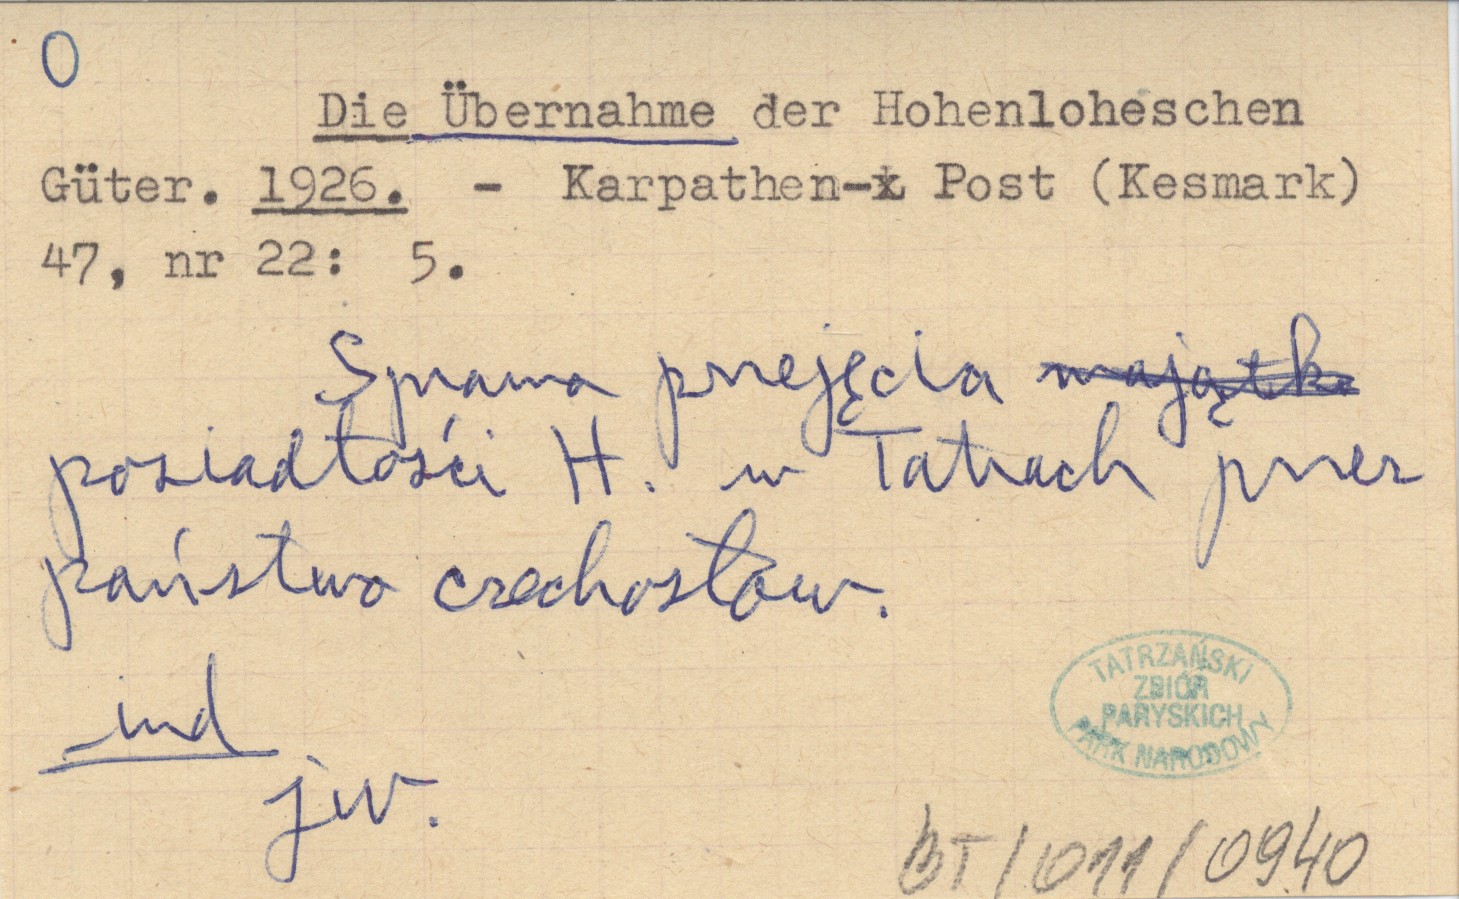 0
Die Übernahme der Hohenloheschen
Güter. 1926. - Karpathen-x Post (Kesmark)
47, nr 22: 5.
Sprawa przejęcia majątk
posiadłości H. w Tatrach przez
państwo czechosłow.
ind
jw.
TATRZAŃSKI
ZBIÓR
PARYSKICH
PARK NARODOWY
BT/011/0940